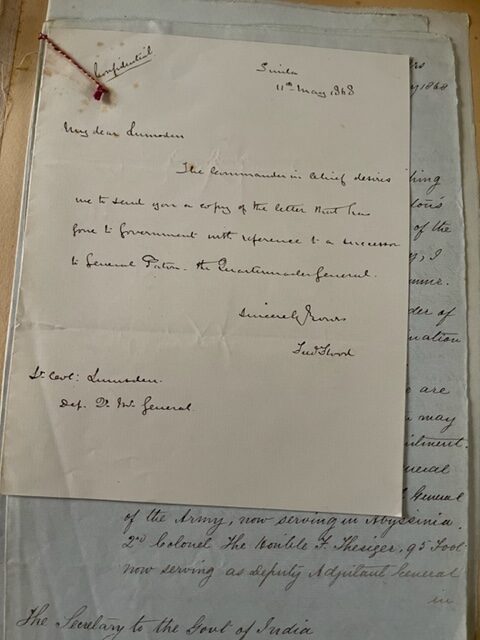 Confidential
Simla
11th May 1868
My dear Lumsden
The Commander in Chief desires
me to send you a copy of the letter that has
gone to Government with reference to a successor
to General Paton - the Quartermaster General.
Sincerely Yours
Lt Col: Lumsden.
Dep. Qr. Mr. General
1868
of the
I
der of
are
may
General
of the Army, now serving in Abyssinia.
2nd Colonel The Honble F. Thesiger, 95 Foot
now serving as Deputy Adjutant General
in
The Secretary to the Govt of India